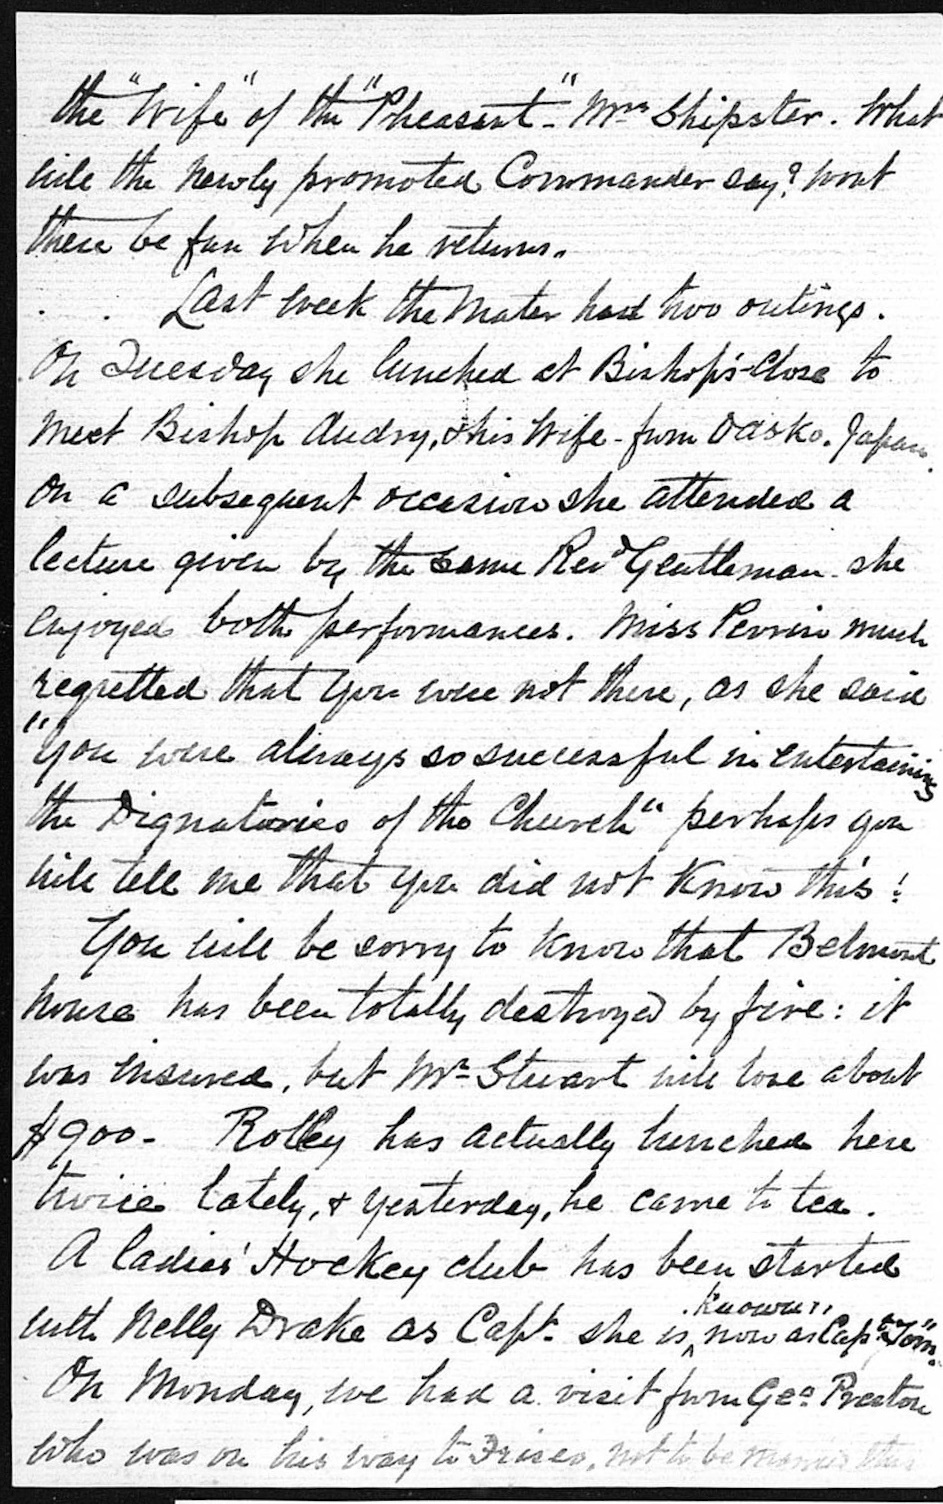 the "Wife" of the "Pheasant-" Mrs Shipster. What
will the newly promoted Commander say? wont
there be fun when he returns.
Last week the Mater had two outings.
On Tuesday she lunched at Bishop's-Close to
meet Bishop Audry, & his Wife - from Oasko. Japan.
on a subsequent occasion she attended a
lecture given by the same Revd Gentleman. she
enjoyed both performances. Miss Perrin much
regretted that you were not there, as she said
"you were always so successful in entertaining
the Dignatories of the Church" perhaps you
will tell me that you did not know this!
You will be sorry to know that Belmont
house has been totally destroyed by fire: it
was insured, but Mr Stuart will lose about
$900- Rolley has actually lunched here
twice lately, & yesterday, he came to tea.
A ladies' Hockey club has been started
with Nelly Drake as Capt. she is known now as Capt "Tom".
On Monday, we had a visit from Geo. Preston
who was on his way to Frisco, not to be married this